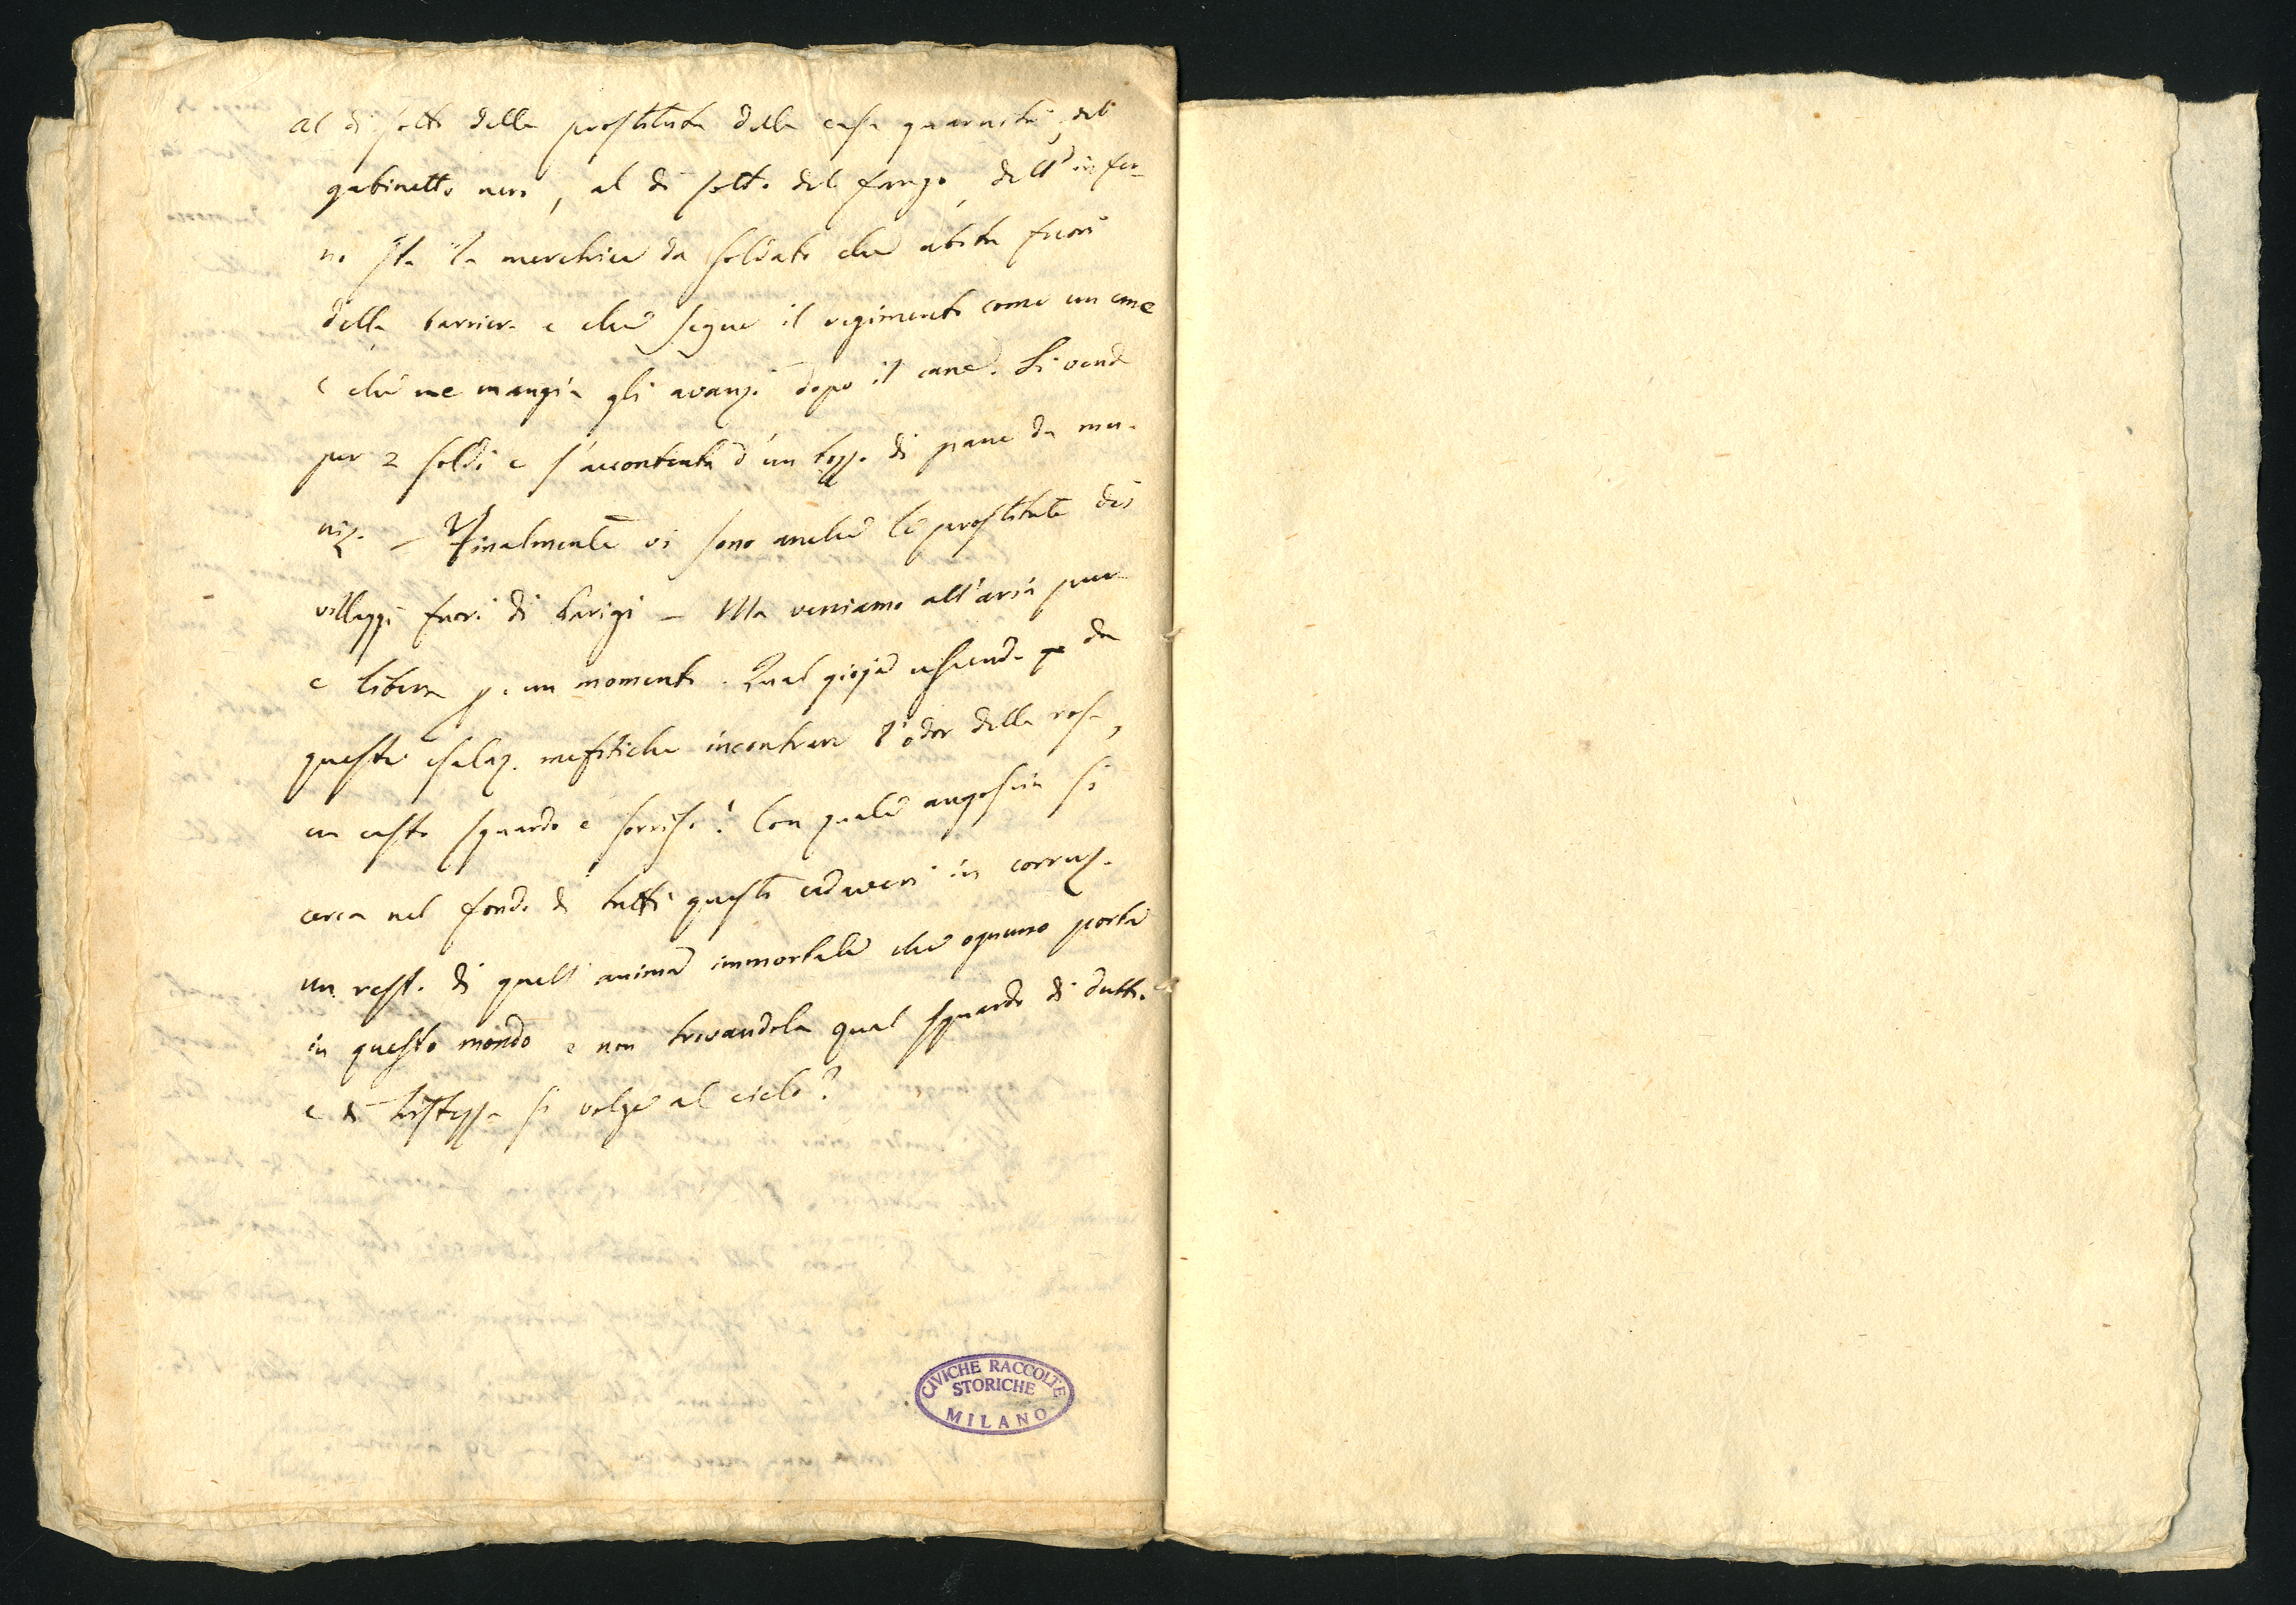 al di sotto della prostituta della casa guarnita, del
gabinetto nero, al di sotto del fango, dell'infer-
no sta la meretrice da soldato che abita fuori
della barriera e che segue il regimento come un cane
e che ne mangia gli avanzi dopo il cane. Si vende
per 2 soldi e s'accontenta d'un tozzo di pane da mu-
niz. – Finalmente vi sono anche le prostitute dei
villaggi fuori di Parigi – Ma veniamo all'aria pura
e libera p. un momento. Qual gioja uscendo da
queste esalaz. mefitiche incontrare l'odor della rosa,
un casto sguardo e sorriso! Con quale angoscia si
cerca nel fondo di tutti questi cadaveri in corruz.
un resto di quell'anima immortale che ognuno porta
in questo mondo e non trovandola qual sguardo di dutto
e di tristezza si volge al cielo?
CIVICHE RACCOLTE
STORICHE
MILANO